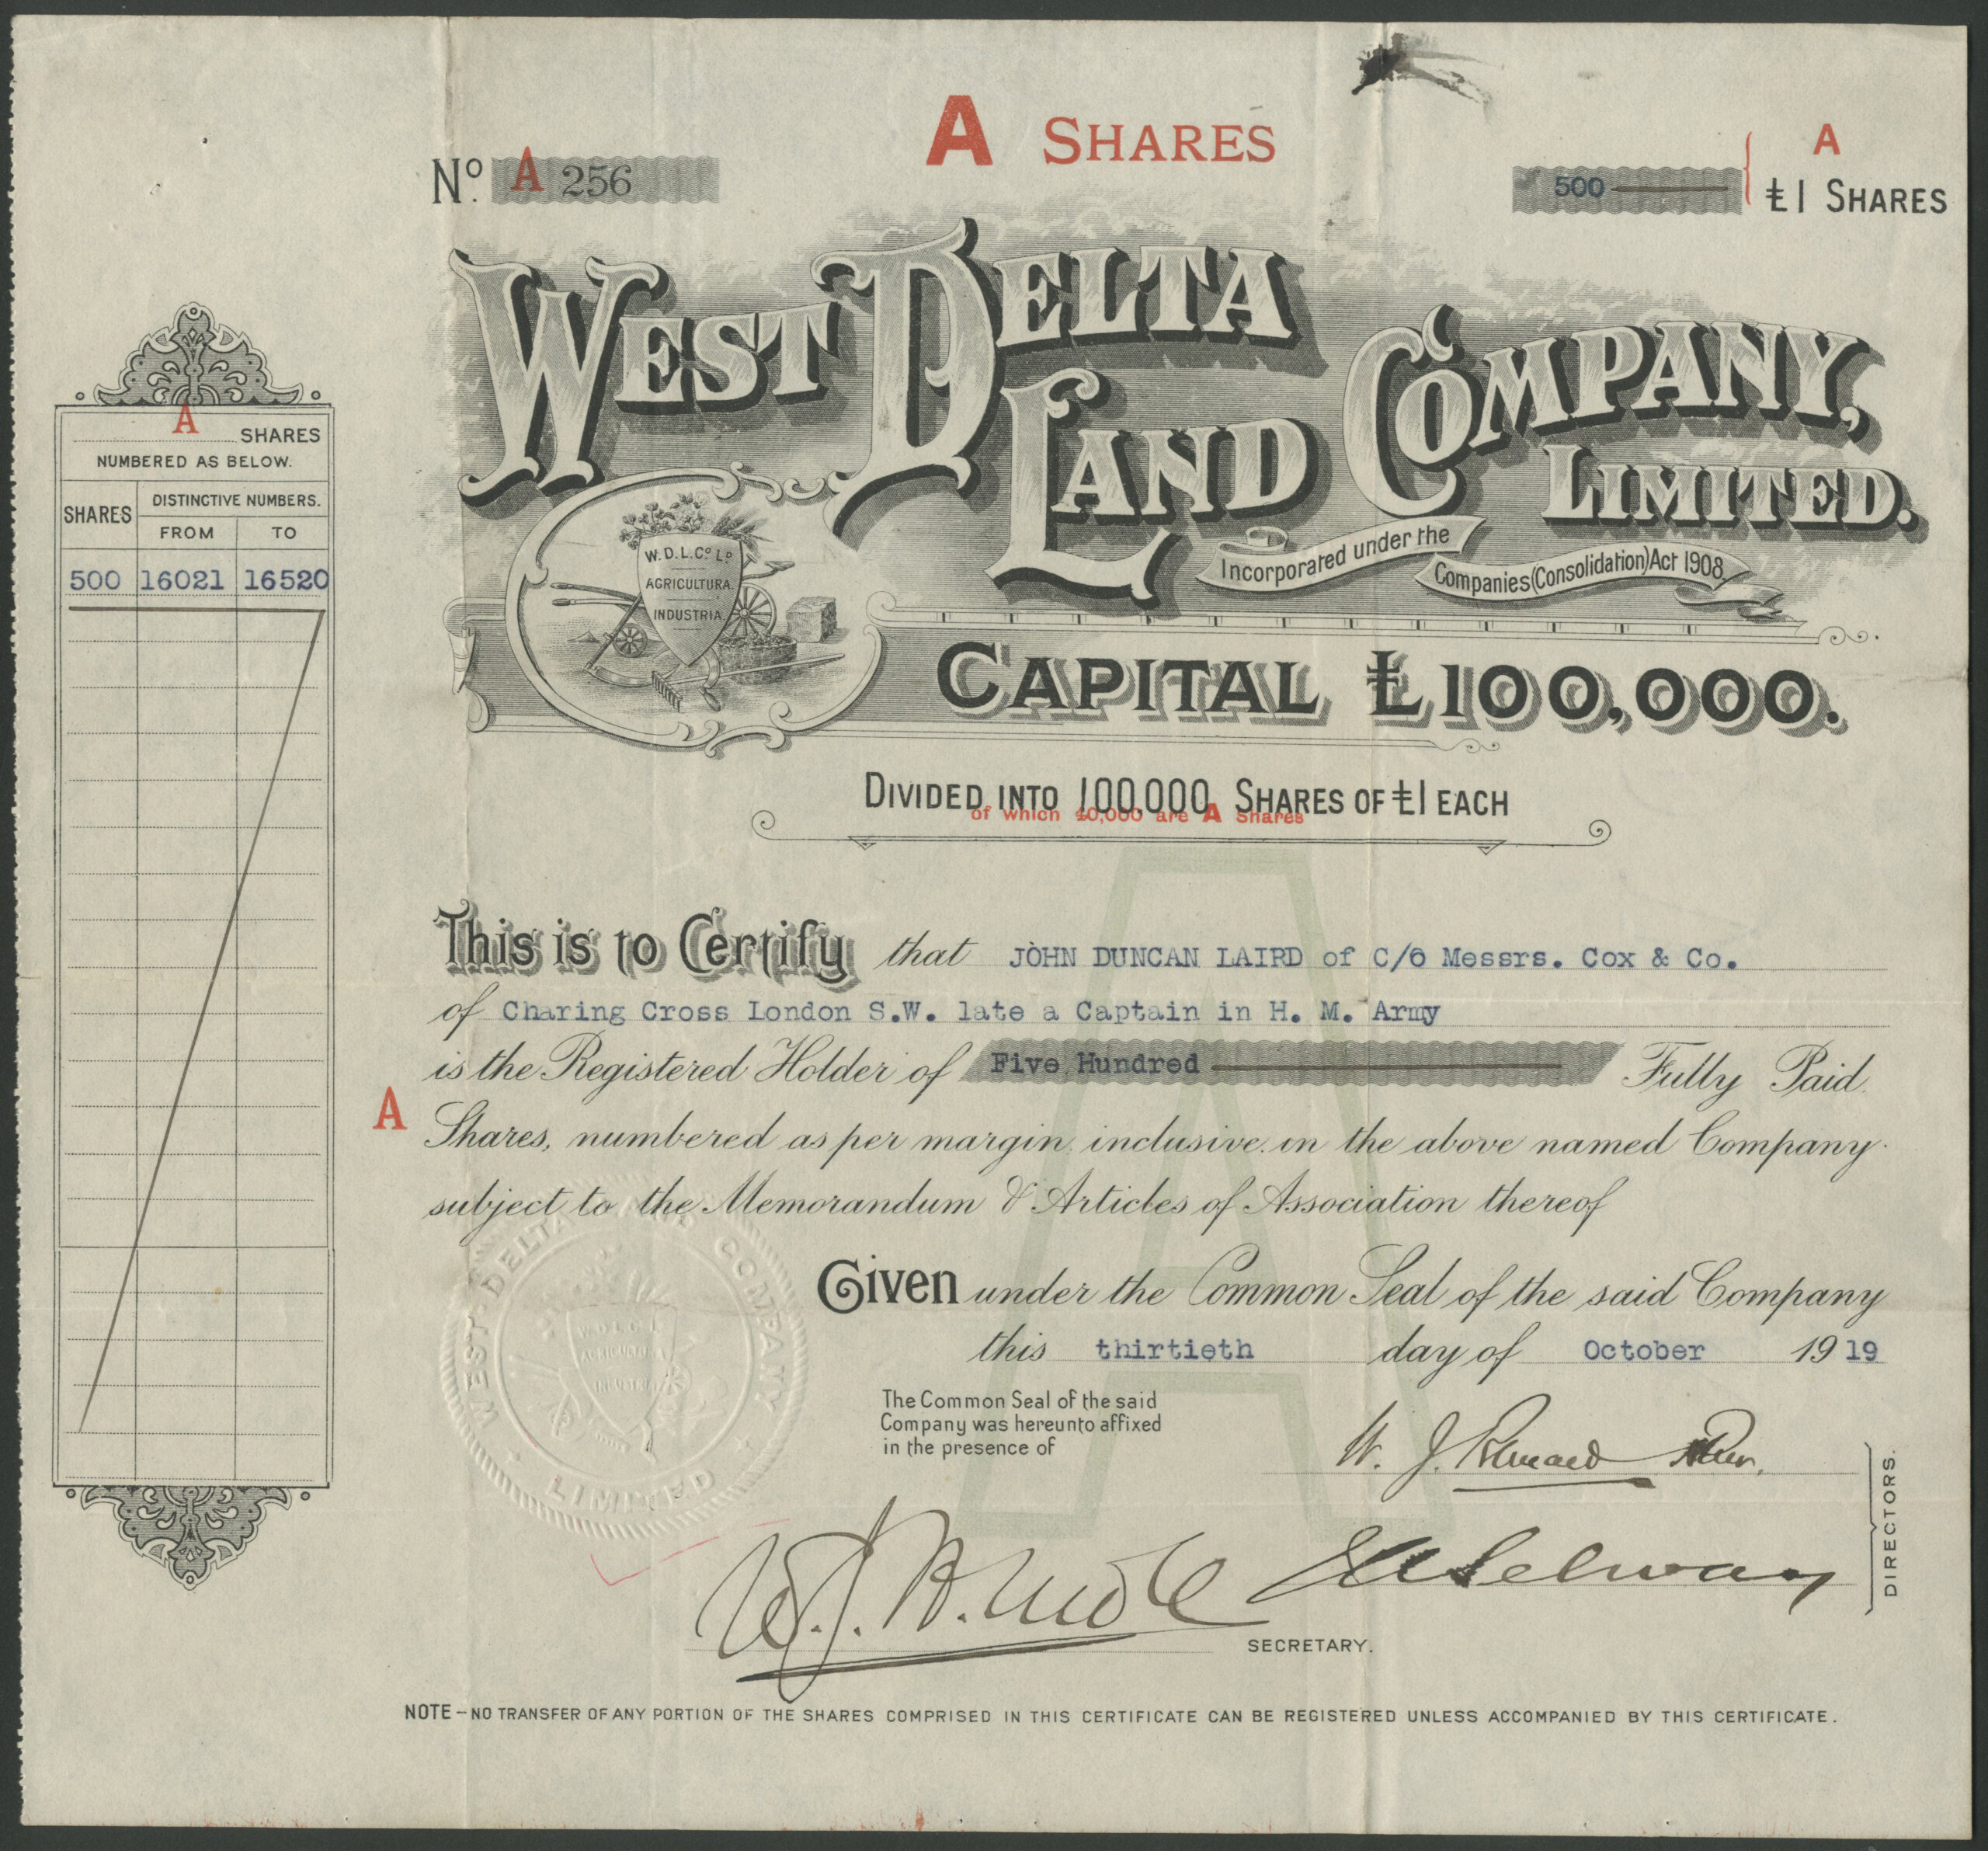 A SHARES
No. A 256
500
A
£1 SHARES
WEST DELTA
LAND COMPANY,
LIMITED.
Incorporated under the
Companies (Consolidation) Act 1908.
W.D.L.Co Ld
AGRICULTURA.
INDUSTRIA.
CAPITAL £100,000.
DIVIDED INTO 100,000 SHARES OF £1 EACH
of which 40,000 are A Shares
A SHARES
NUMBERED AS BELOW.
SHARES
DISTINCTIVE NUMBERS.
FROM TO
500 16021 16520
This is to Certify that JOHN DUNCAN LAIRD of C/o Messrs. Cox & Co.
of Charing Cross London S.W. late a Captain in H. M. Army
is the Registered Holder of Five Hundred Fully Paid
A Shares, numbered as per margin inclusive in the above named Company
subject to the Memorandum & Articles of Association thereof
Given under the Common Seal of the said Company
this thirtieth day of October 1919
The Common Seal of the said
Company was hereunto affixed
in the presence of
W. J.
Selway
DIRECTORS.
SECRETARY.
WEST DELTA LAND COMPANY
LIMITED
W.D.L.C.L.
AGRICULTURA
INDUSTRIA
A
NOTE - NO TRANSFER OF ANY PORTION OF THE SHARES COMPRISED IN THIS CERTIFICATE CAN BE REGISTERED UNLESS ACCOMPANIED BY THIS CERTIFICATE.